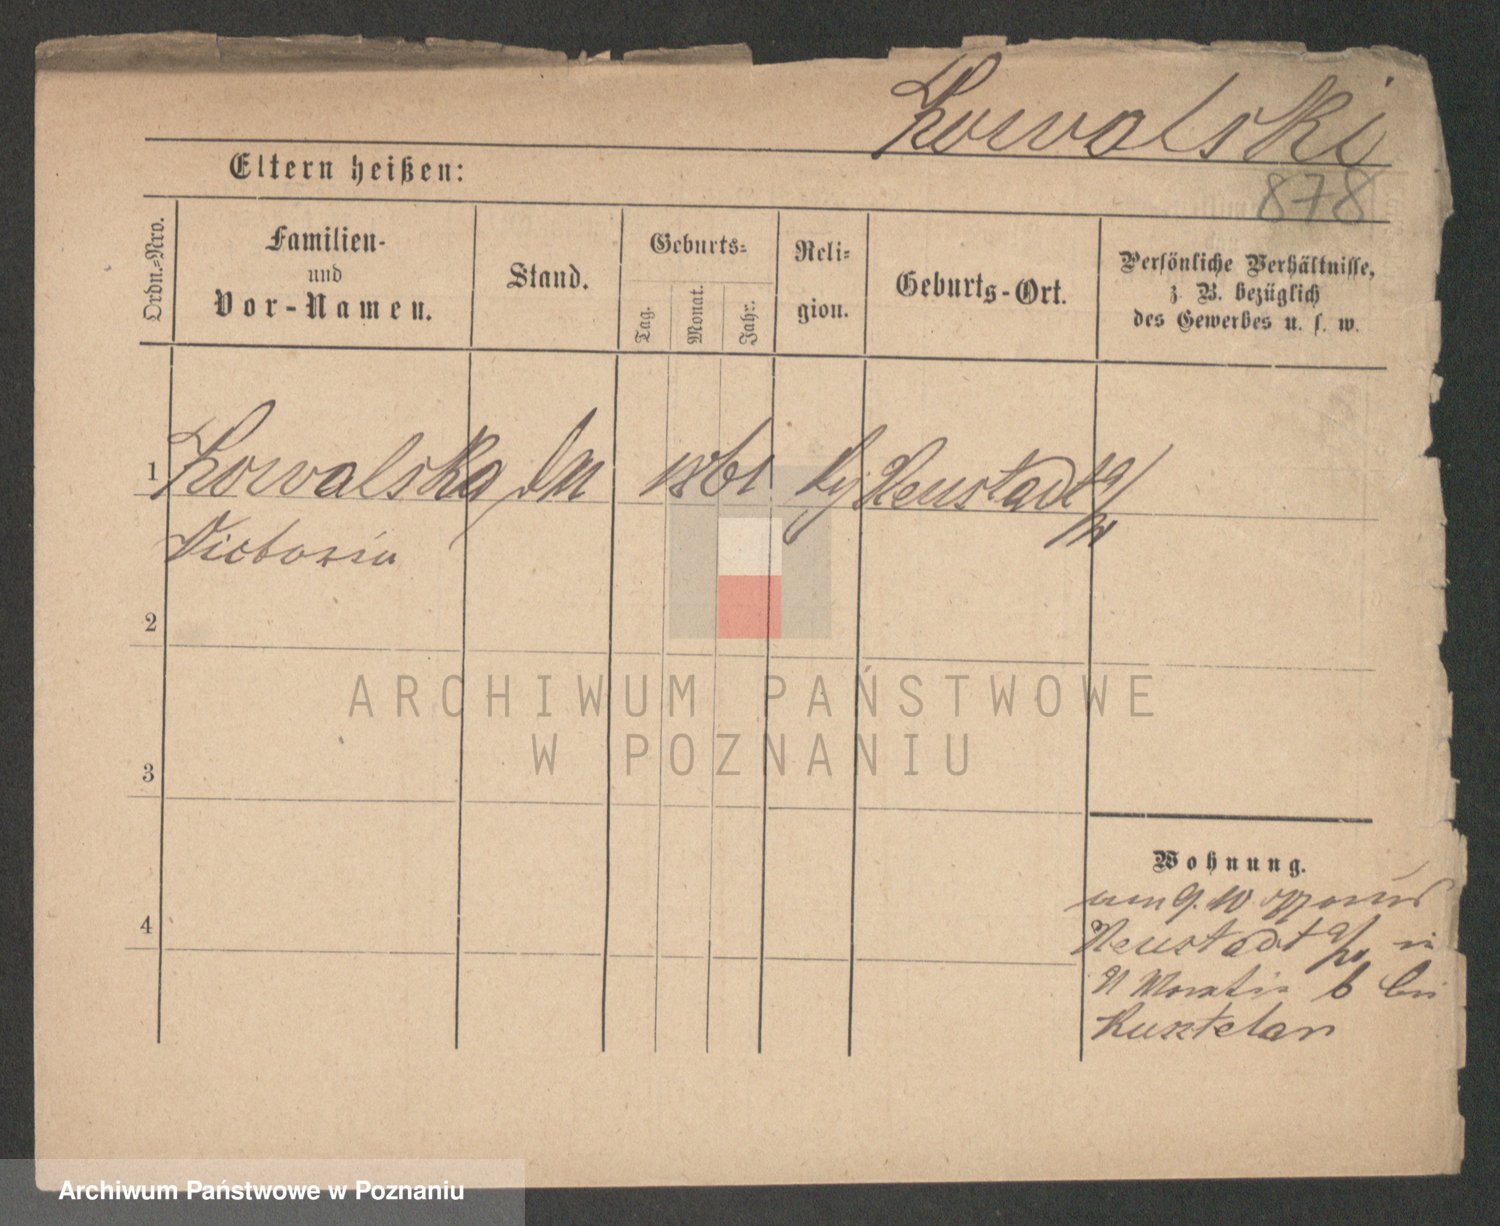 Kowalski
Eltern heißen:
878
Ordn.=Nro.
Familien-
und
Vor-Namen.
Stand.
Geburts=
Tag.
Monat.
Jahr.
Reli=
gion.
Geburts-Ort.
Persönliche Verhältnisse,
z. B. bezüglich
des Gewerbes u. s. w.
1 Kowalska 1861 Neustadt a/W
Victoria
2
3
4
Wohnung.
9. 10
Neustadt a/W in
6 bei
ARCHIWUM PAŃSTWOWE
W POZNANIU
Archiwum Państwowe w Poznaniu